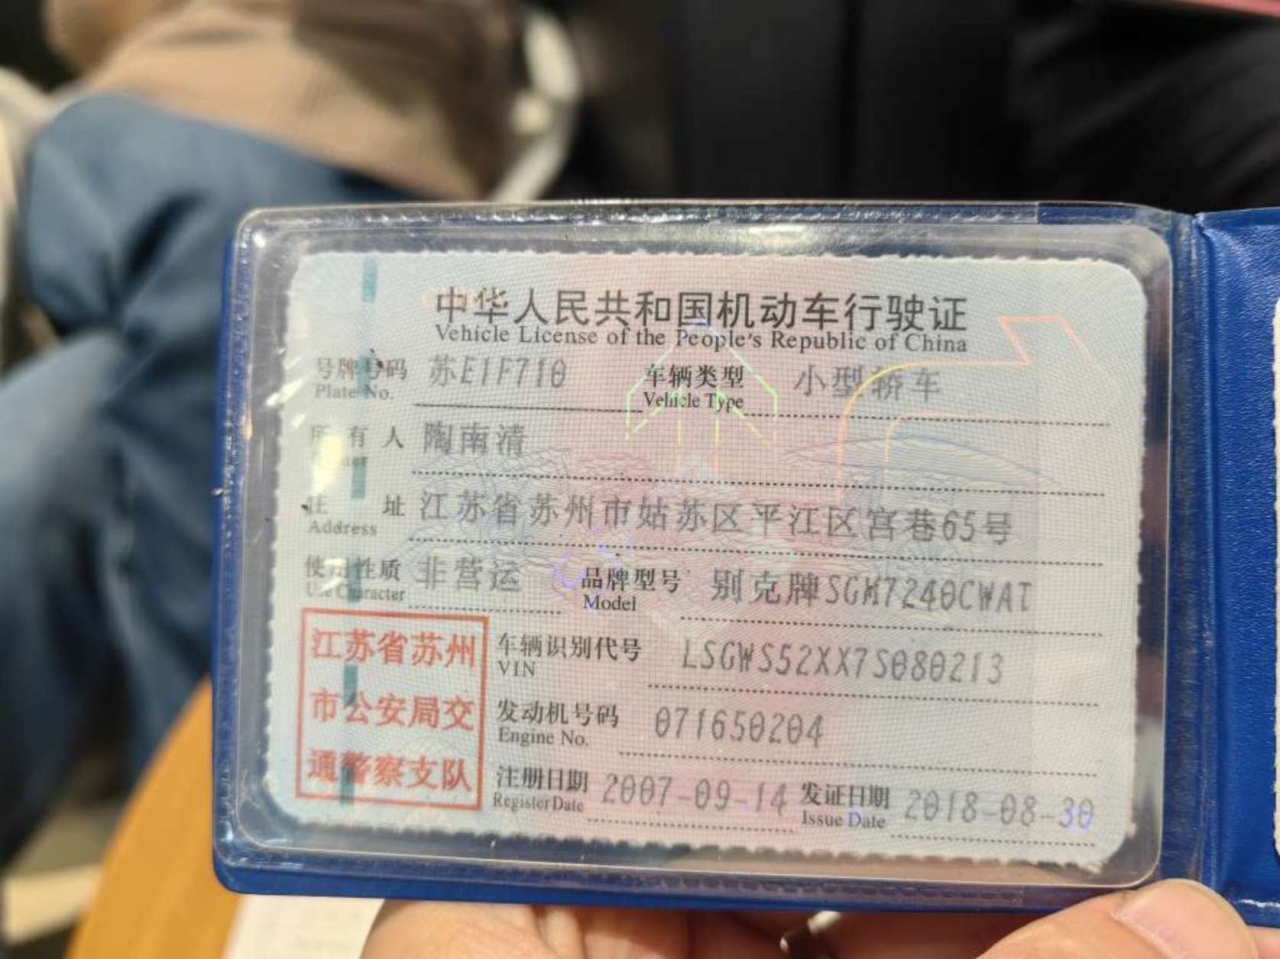 中华人民共和国机动车行驶证
Vehicle License of the People's Republic of China
号牌号码 苏E1F710 车辆类型 小型轿车
Plate No. Vehicle Type
所有人 陶南清
住址 江苏省苏州市姑苏区平江区宫巷65号
Address
使用性质 非营运 品牌型号 别克牌SGM7240CWAT
Use Character Model
江苏省苏州
市公安局交
通警察支队
车辆识别代号 LSGWS52XX7S080213
VIN
发动机号码 071650204
Engine No.
注册日期 2007-09-14 发证日期 2018-08-30
Register Date Issue Date